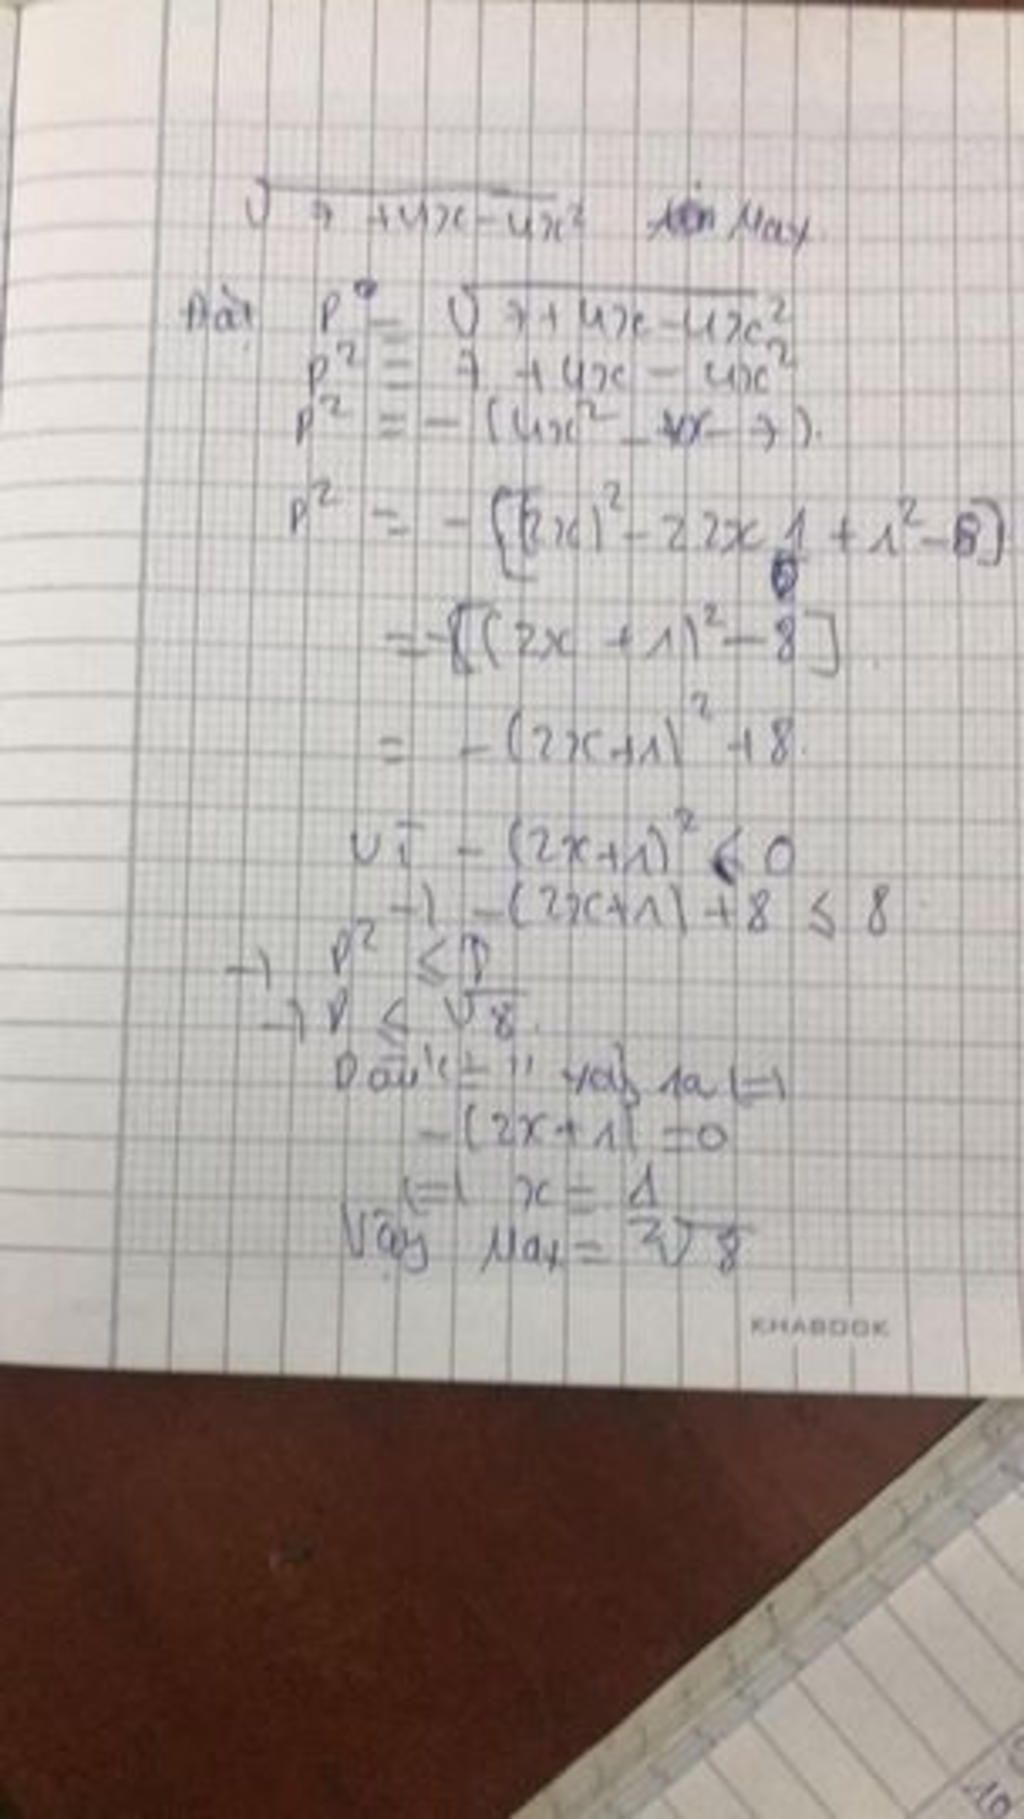 √7 + 4x - 4x² tìm Max
Đặt P = √7 + 4x - 4x²
P² = 7 + 4x - 4x²
P² = - (4x² - 4x - 7).
P² = - [(2x)² - 2 2x 1 + 1² - 8]
= -[(2x + 1)² - 8]
= - (2x+1)² + 8.
Vì - (2x+1)² ≤ 0
-) - (2x+1) + 8 ≤ 8
-) P² ≤ 8
-) P ≤ √8.
Dấu "=" xảy ra (=)
- (2x+1) = 0
(=) x = 1/2
Vậy Max = √8
KHABOOK
10